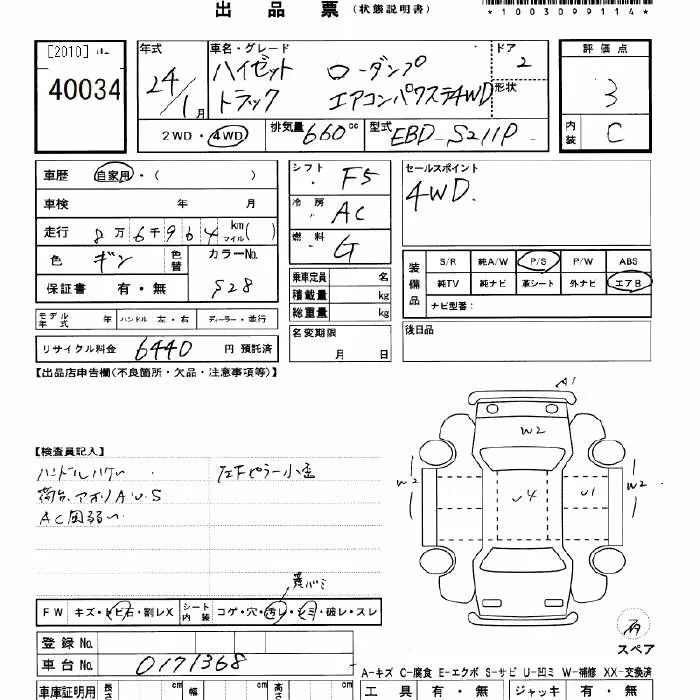 出 品 票 (状態説明書)
*1003099114*
[2010]
40034
年式
24/1月
車名・グレード
ハイゼット ローダンプ
トラック エアコンパワステ4WD
ドア 2
形状
評価点
3
内装 C
2WD・4WD
排気量 660 cc
型式 EBD-S211P
車歴 自家用・( )
車検 年 月
走行 8万6千964 km マイル( )
色 ギン 色替
カラーNo. S28
保証書 有・無
モデル年式 年 ハンドル 左・右 ディーラー・並行
リサイクル料金 6440 円 預託済
シフト F5
冷房 AC
燃料 G
乗車定員 名
積載量 kg
総重量 kg
名変期限
月 日
セールスポイント
4WD.
装備品
S/R 純A/W P/S P/W ABS
純TV 純ナビ 革シート 外ナビ エアB
ナビ型番:
後日品
【出品店申告欄(不良箇所・欠品・注意事項等)】
【検査員記入】
ハンドルハゲ
荷台、アオリA.U.S
AC風弱い
左Fピラー小歪
A1
W2
W2
U4
U1
W2
FW キズ・トビ石・割レX
シート内装 コゲ・穴・汚レ・シミ・破レ・スレ
スペア
登録No.
車台No. 0171368
A-キズ C-腐食 E-エクボ S-サビ U-凹ミ W-補修 XX-交換済
車庫証明用 長さ cm 幅 cm 高さ cm
工具 有・無 ジャッキ 有・無